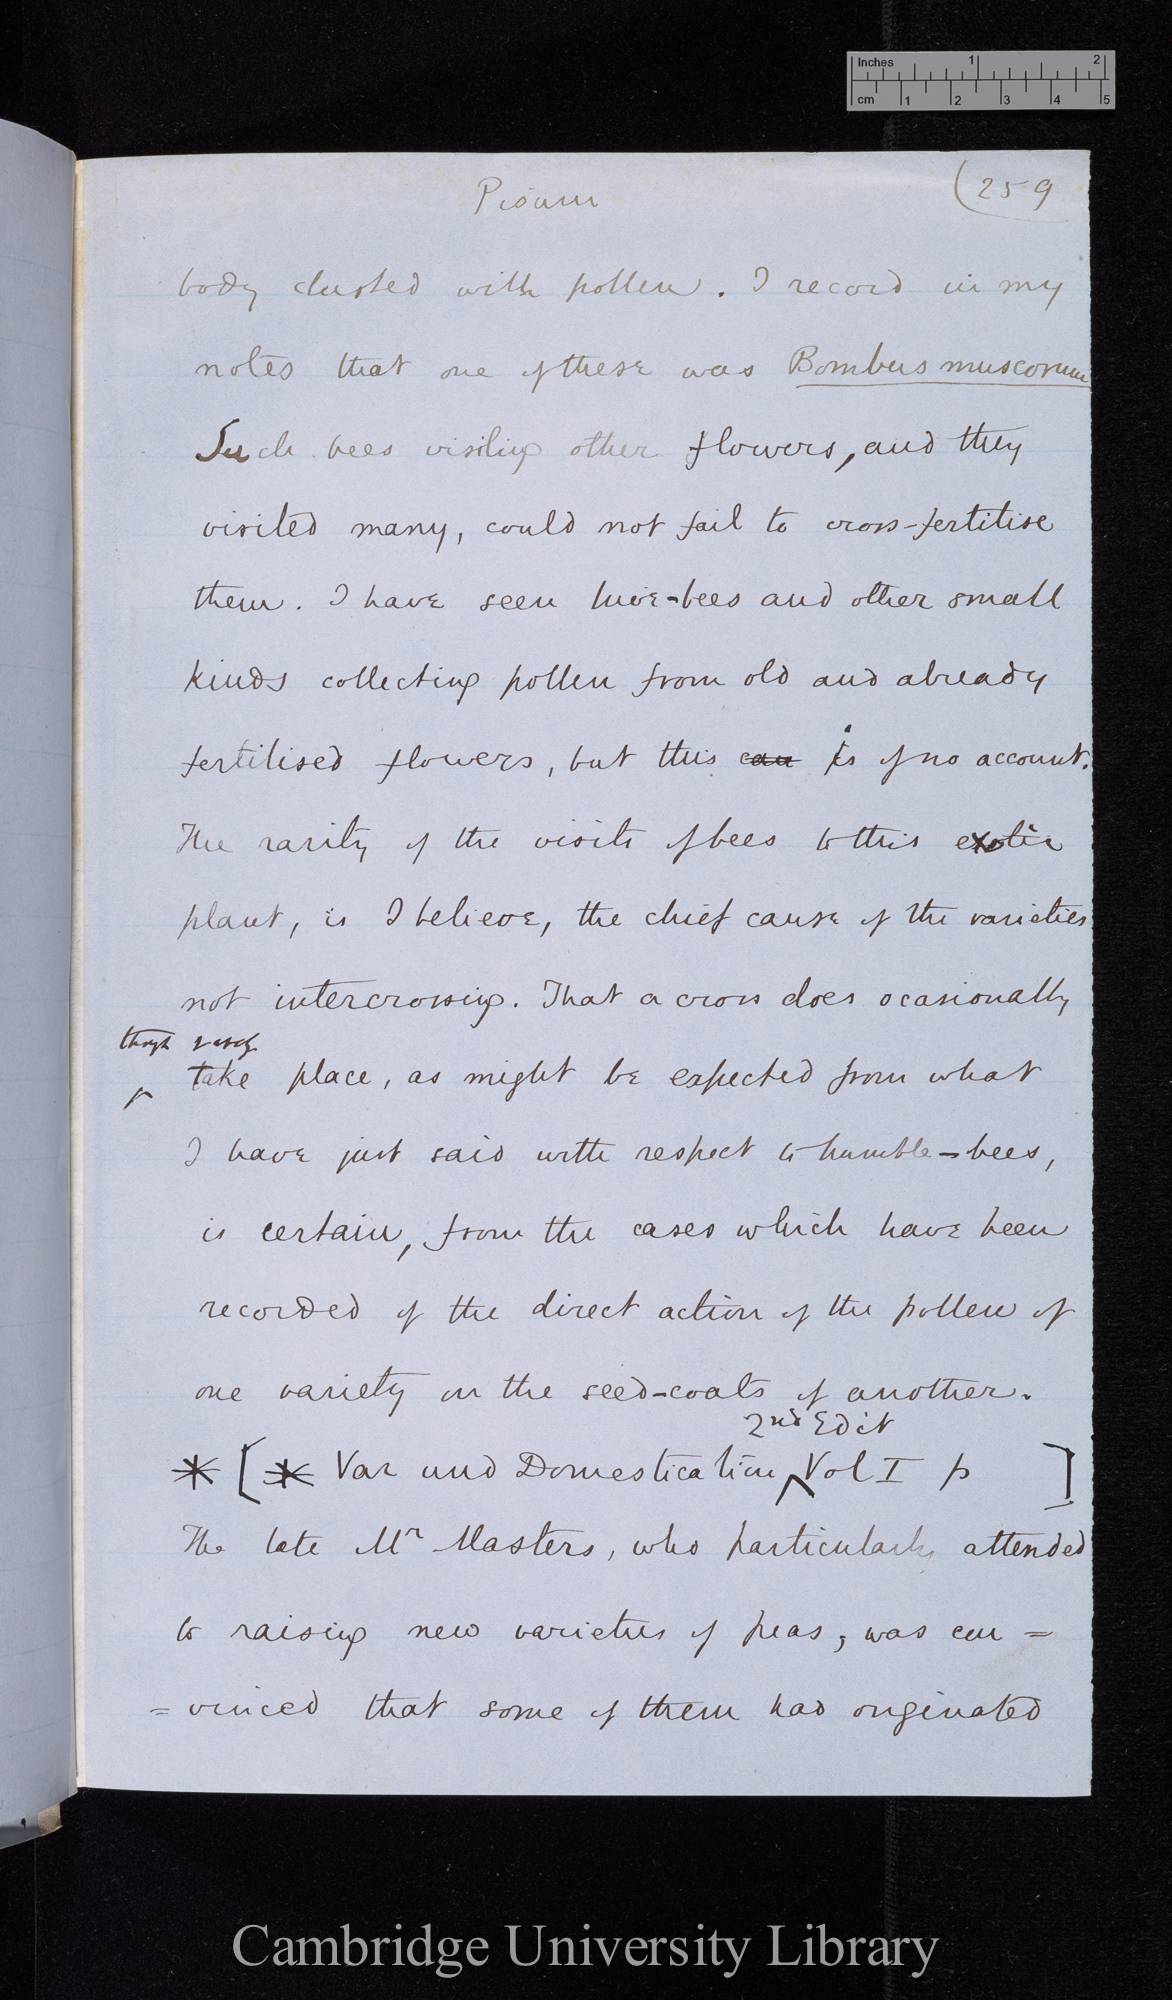 Inches 1 2
cm 1 2 3 4 5
Pisum (259
body dusted with pollen. I record in my
notes that one of these was Bombus muscorum
Such bees visiting other flowers, and they
visited many, could not fail to cross-fertilise
them. I have seen hive-bees and other small
kinds collecting pollen from old and already
fertilised flowers, but this can is of no account.
The rarity of the visits of bees to this exotic
plant, is I believe, the chief cause of the varieties
not intercrossing. That a cross does ocasionally
though rarely
take place, as might be expected from what
I have just said with respect to humble-bees,
is certain, from the cases which have been
recorded of the direct action of the pollen of
one variety on the seed-coats of another.
2nd Edit
* [* Var und Domestication Vol I p ]
The late Mr Masters, who particularly attended
to raising new varieties of peas, was con=
=vinced that some of them had originated
Cambridge University Library